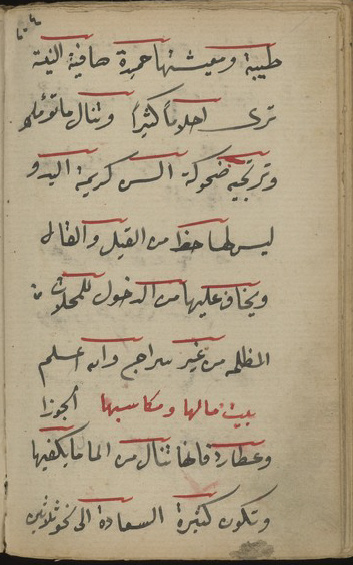 طيبة ومعيشتها حميدة صافية النية
ترى احلاماً كثيراً وتنال ما تؤمله
وترتجيه ضحوكة السن كريمة اليدو
ليس لها حظ من القيل والقال
ويخاف عليها من الدخول للمحلات
المظلمه من غير سراج والله اعلم
بيت مالها ومكاسبها الجوزا
وعطارد فانها تنال من المال ما يكفيها
وتكون كثيرة السعادة الى نحو ثلاثين